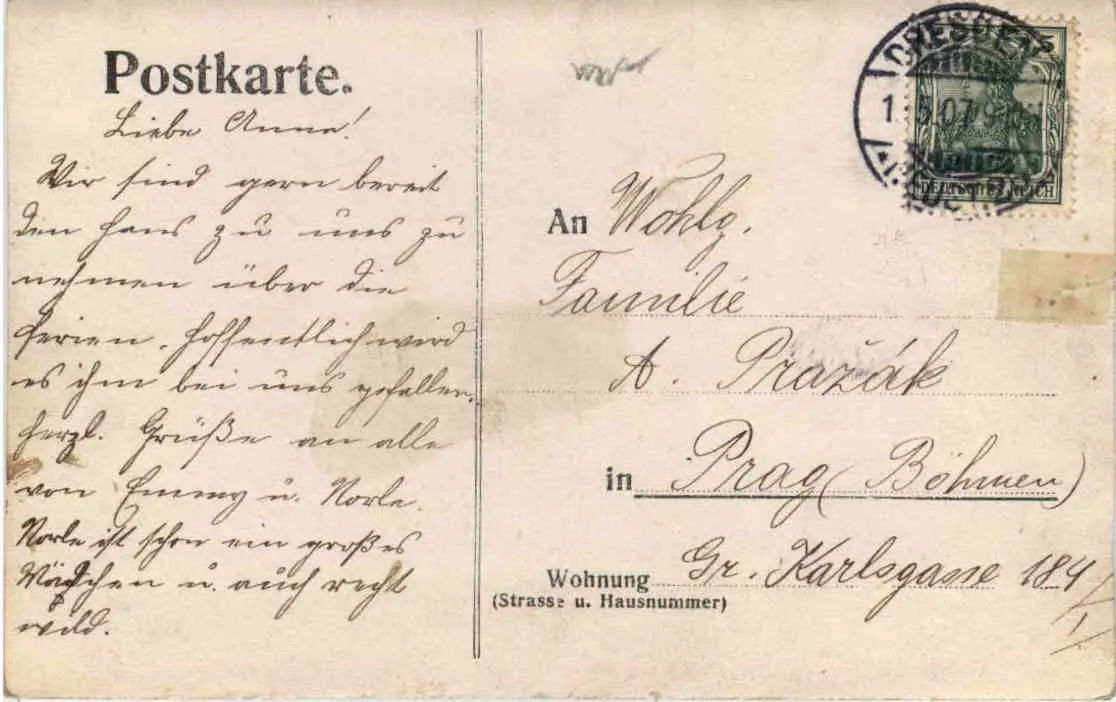 Postkarte.
Liebe Anna!
Wir sind gern bereit
den Hans zu uns zu
nehmen über die
Ferien. Hoffentlich wird
es ihm bei uns gefallen.
Herzl. Grüße an alle
von Emmy u. Norle.
Norle ist schon ein großes
Mädchen u. auch recht
wild.
DRESDEN
5.07.9
DEUTSCHES REICH
An Wohlg.
Familie
A. Pražák
in Prag (Böhmen)
Wohnung Gr. Karlsgasse 184
(Strasse u. Hausnummer)